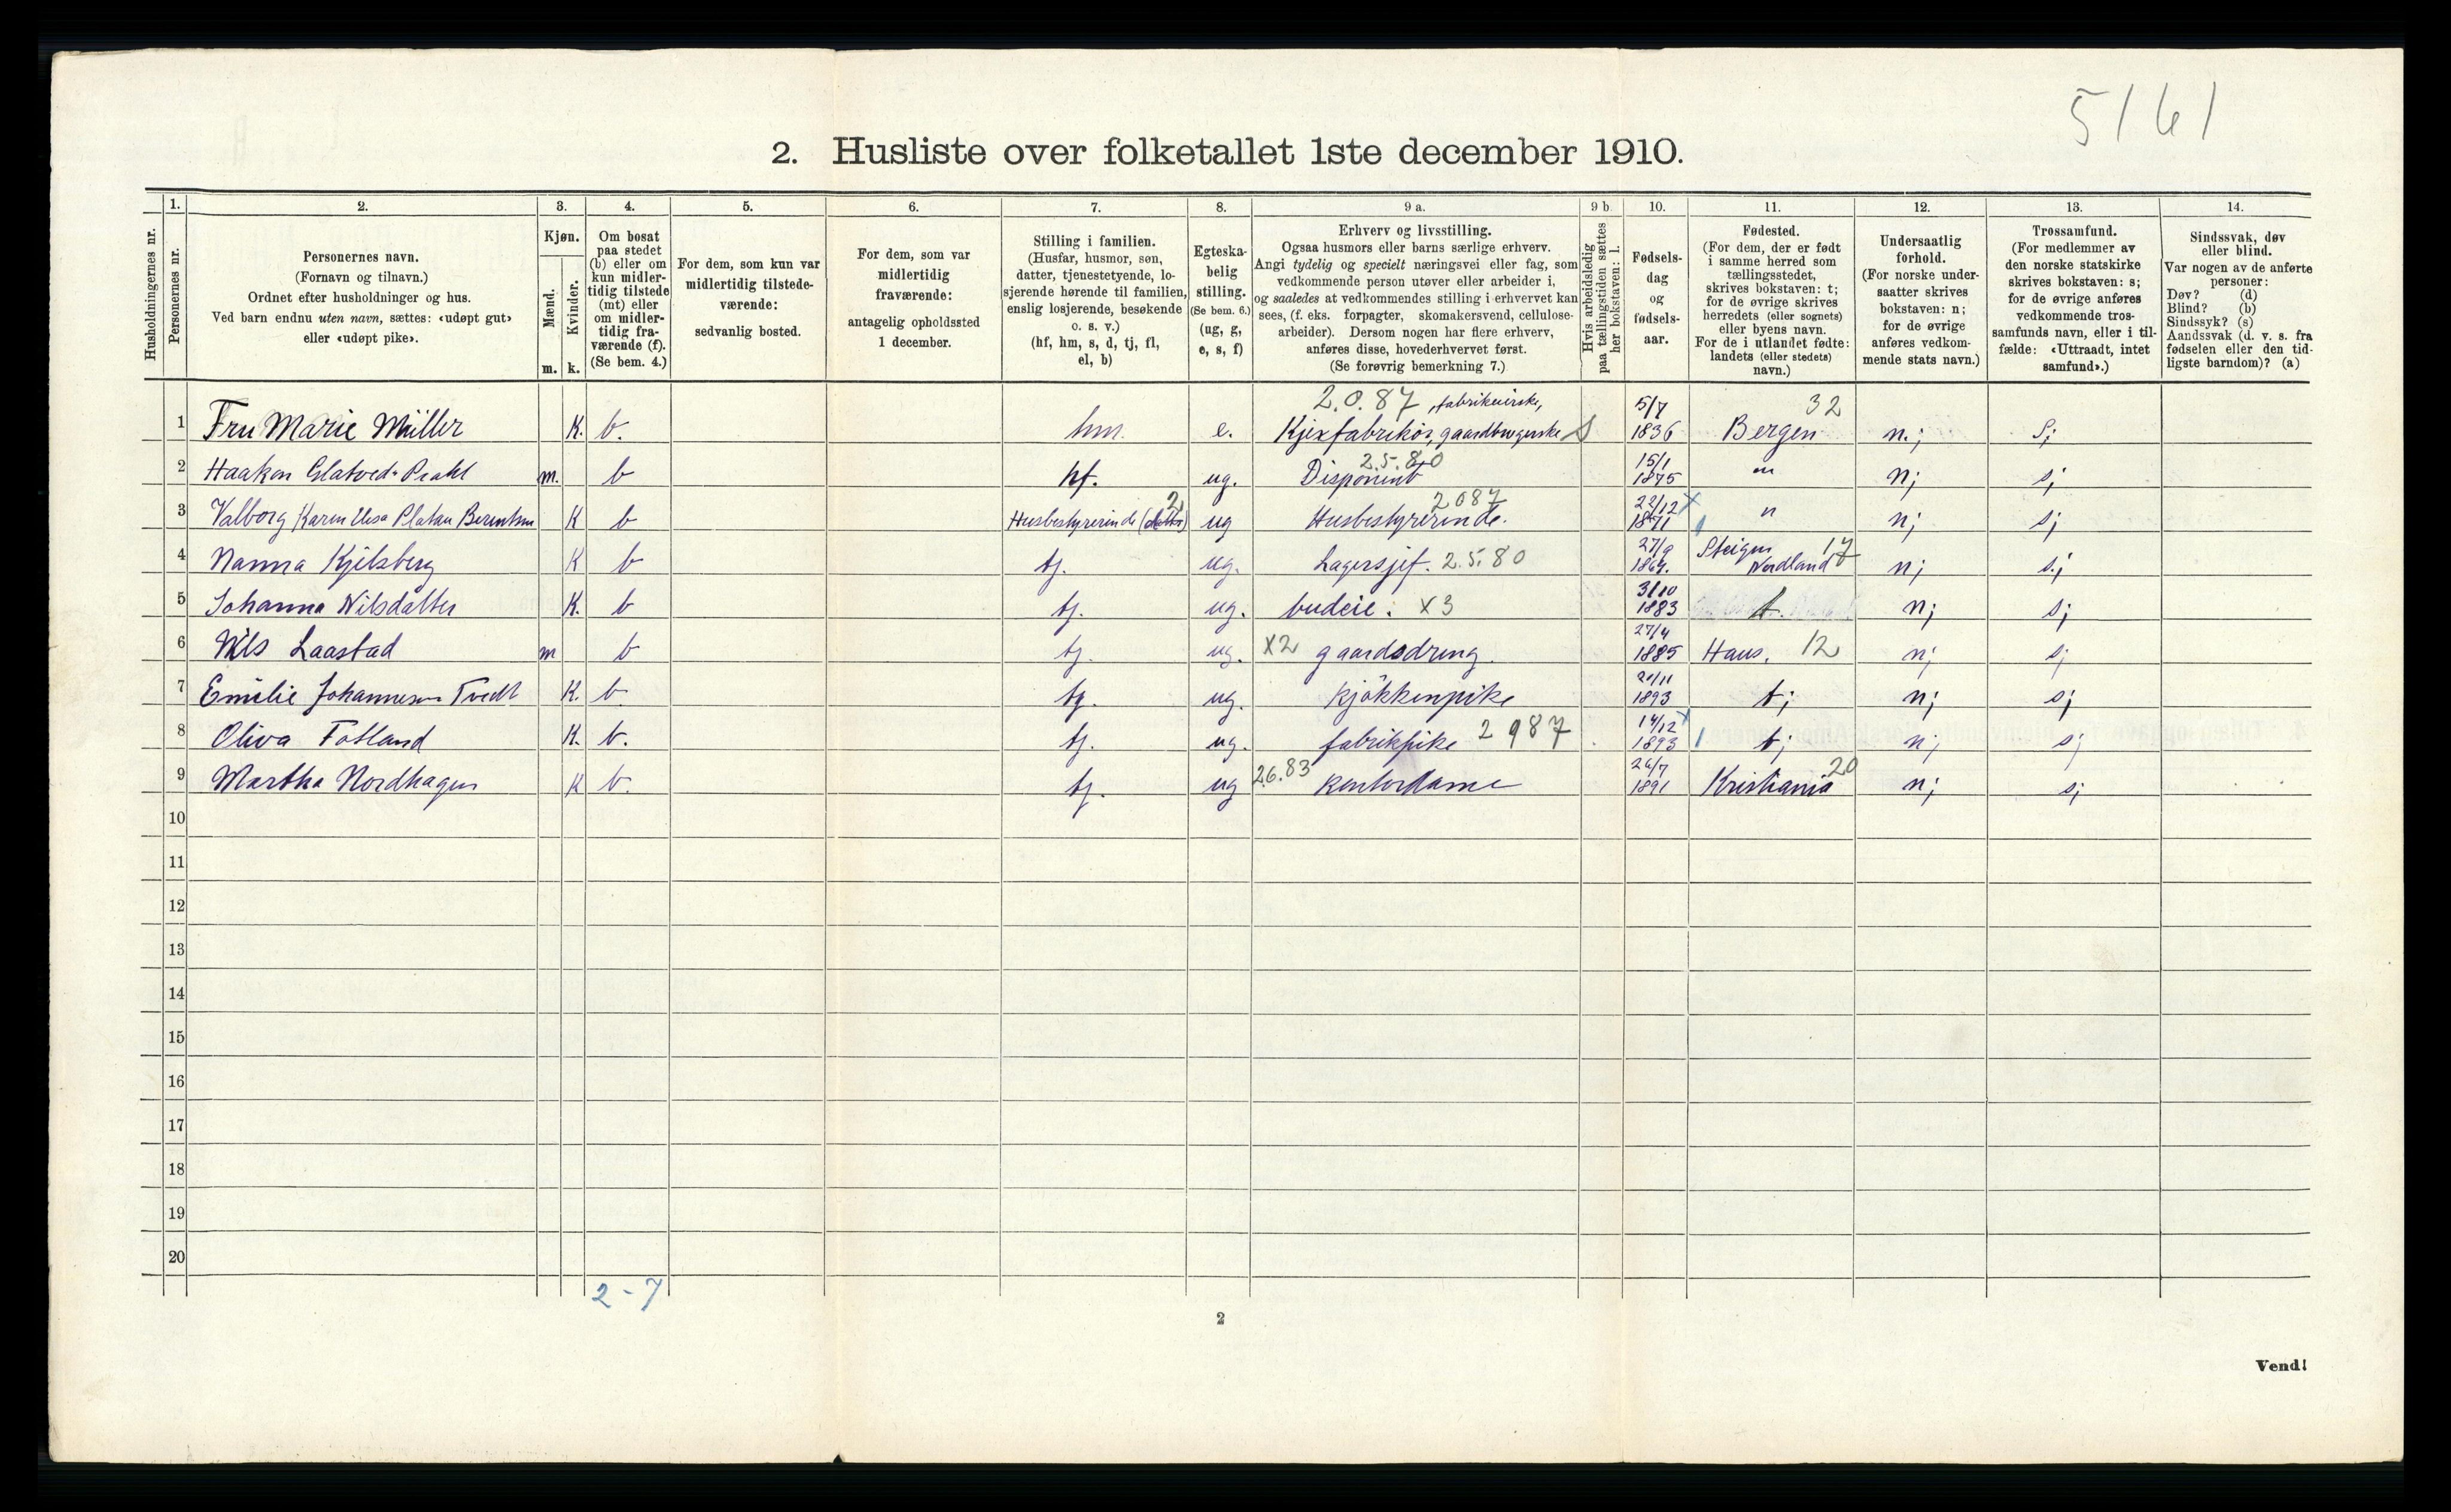 5161
2. Husliste over folketallet 1ste december 1910.
Husholdningernes nr.
1.
Personernes nr.
2.
Personernes navn.
(Fornavn og tilnavn.)
Ordnet efter husholdninger og hus.
Ved barn endnu uten navn, sættes: «udøpt gut»
eller «udøpt pike».
3.
Kjøn.
Mænd.
Kvinder.
m. k.
4.
Om bosat
paa stedet
(b) eller om
kun midler-
tidig tilstede
(mt) eller
om midler-
tidig fra-
værende (f).
(Se bem. 4.)
5.
For dem, som kun var
midlertidig tilstede-
værende:
sedvanlig bosted.
6.
For dem, som var
midlertidig
fraværende:
antagelig opholdssted
1 december.
7.
Stilling i familien.
(Husfar, husmor, søn,
datter, tjenestetyende, lo-
sjerende hørende til familien,
enslig losjerende, besøkende
o. s. v.)
(hf, hm, s, d, tj, fl,
el, b)
8.
Egteska-
belig
stilling.
(Se bem. 6.)
(ug, g,
e, s, f)
9 a.
Erhverv og livsstilling.
Ogsaa husmors eller barns særlige erhverv.
Angi tydelig og specielt næringsvei eller fag, som
vedkommende person utøver eller arbeider i,
og saaledes at vedkommendes stilling i erhvervet kan
sees, (f. eks. forpagter, skomakersvend, cellulose-
arbeider). Dersom nogen har flere erhverv,
anføres disse, hovederhvervet først.
(Se forøvrig bemerkning 7.)
9 b.
Hvis arbeidsledig
paa tællingstiden sættes
her bokstaven: l.
10.
Fødsels-
dag
og
fødsels-
aar.
11.
Fødested.
(For dem, der er født
i samme herred som
tællingsstedet,
skrives bokstaven: t;
for de øvrige skrives
herredets (eller sognets)
eller byens navn.
For de i utlandet fødte:
landets (eller stedets)
navn.)
12.
Undersaatlig
forhold.
(For norske under-
saatter skrives
bokstaven: n;
for de øvrige
anføres vedkom-
mende stats navn.)
13.
Trossamfund.
(For medlemmer av
den norske statskirke
skrives bokstaven: s;
for de øvrige anføres
vedkommende tros-
samfunds navn, eller i til-
fælde: «Uttraadt, intet
samfund».)
14.
Sindssvak, døv
eller blind.
Var nogen av de anførte
personer:
Døv? (d)
Blind? (b)
Sindssyk? (s)
Aandssvak (d. v. s. fra
fødselen eller den tid-
ligste barndom)? (a)
2.0.87 5/7 32
1 Fru Marie Müller K. b. hm. e. Kjexfabrikör, gaardbrugerske 1836 Bergen n.; s;
2.5.80 15/1
2 Haakon Prahl m. b hf. ug. Disponent 1875 " n; s;
2 2087 22/12 x
3 Valborg Karen Platou K b Husbestyrerinde ug Husbestyrerinde. 1871 " n; s;
27/9 Steigen 17
4 Nanna Kjelsberg K b tj. ug. Lagersjef. 2.5.80 Nordland n; s.;
31/10
5 Johanna Nilsdatter K. b tj. ug. budeie. x3 1883 t. n; s;
27/4
6 Nils Laastad m b tj. ug. x2 gaardsdreng. 1885 Haus. 12 n; s;
7 Emilie Johannesen Tvedt K. b. tj. ug. Kjökkenpike 1893 t; n; s;
14/12
8 Oliva Totland K. b. tj. ug. fabrikpike 2 987 1893 t; n; s;
26.83 26/7 20
9 Martha Nordhagen K b. tj. ug kontordame 1891 Kristiania n; s;
10
11
12
13
14
15
16
17
18
19
20
2 - 7
2
Vend!